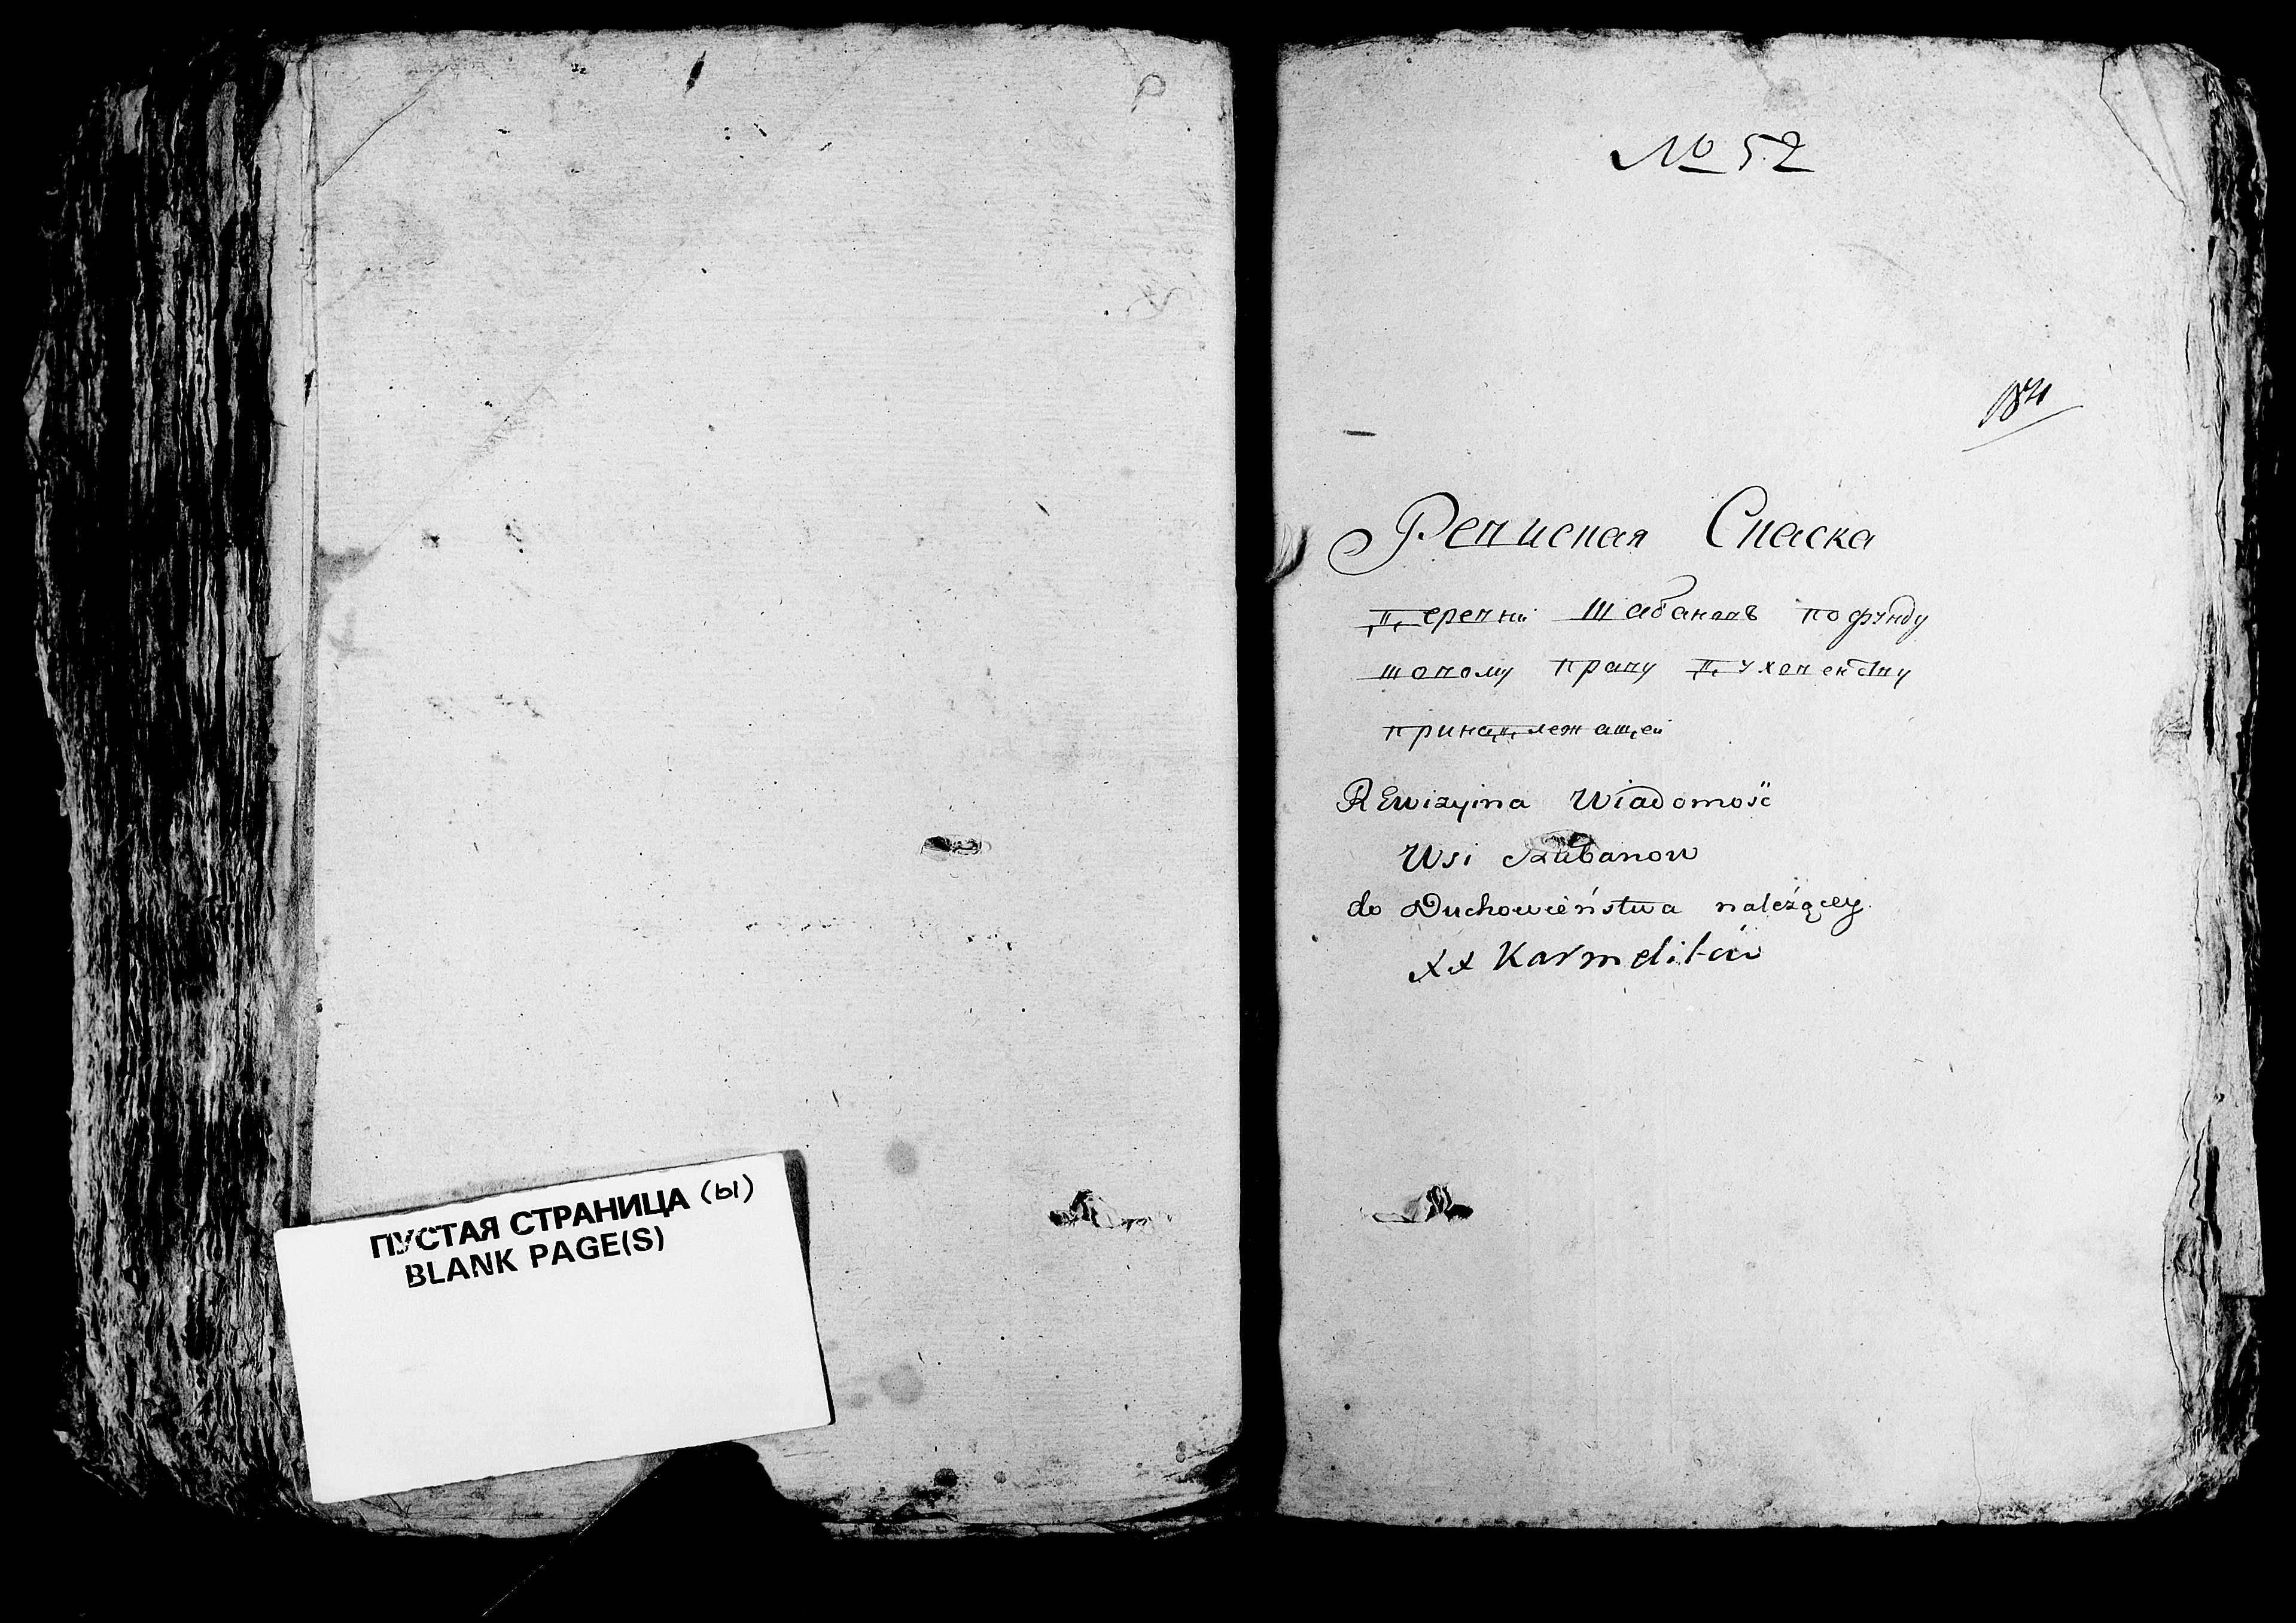 ПУСТАЯ СТРАНИЦА (ы)
BLANK PAGE(S)
№ 52
Ревисная Спаска
Деревни Шабановъ пофунду
шовому праву Духовенству
принадлежащей
Rewizyina Wiadomość
Wsi Szabanow
do Duchowieństwa należącey
XX Karmelitów